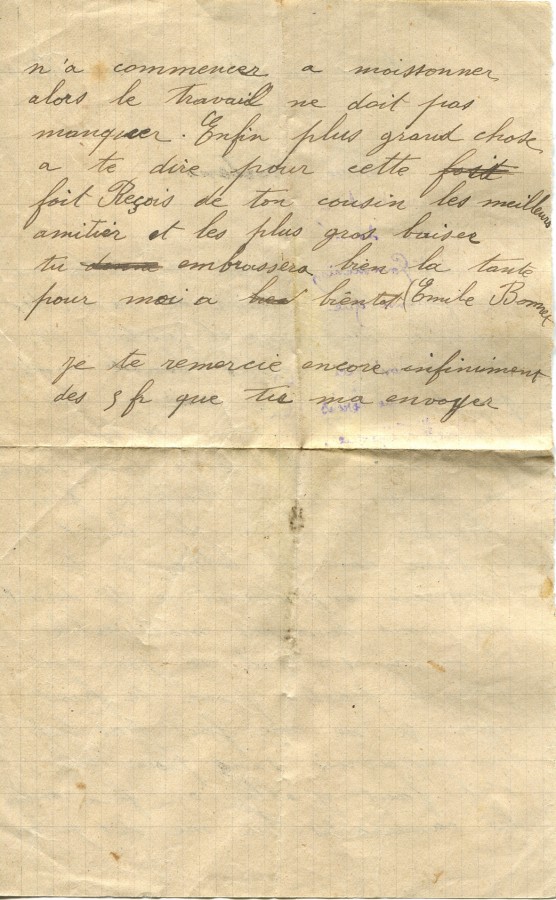 n'a commencer a moissonner
alors le travail ne doit pas
manquer. Enfin plus grand chose
a te dire pour cette foit
foit Reçois de ton cousin les meilleurs
amitier et les plus gros baiser
tu donne embrassera bien la tante
pour moi a bientot Emile Bonnet
je te remercie encore infiniment
des 5 fr que tu ma envoyer